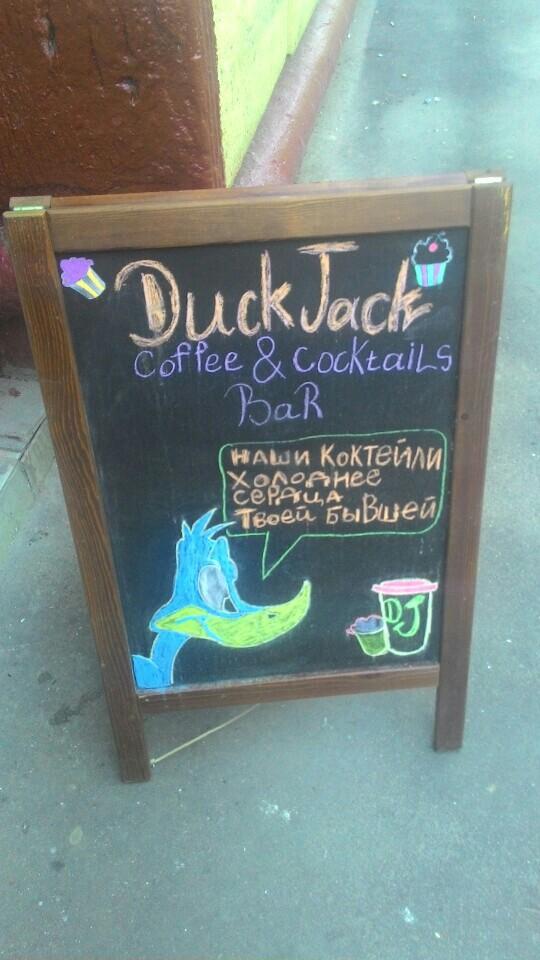 DuckJack
Coffee & Cocktails
BaR
НАШИ КОКТЕЙЛИ
ХОЛОДНЕЕ
СЕРДЦА
ТВОЕЙ БЫВШЕЙ
DJ